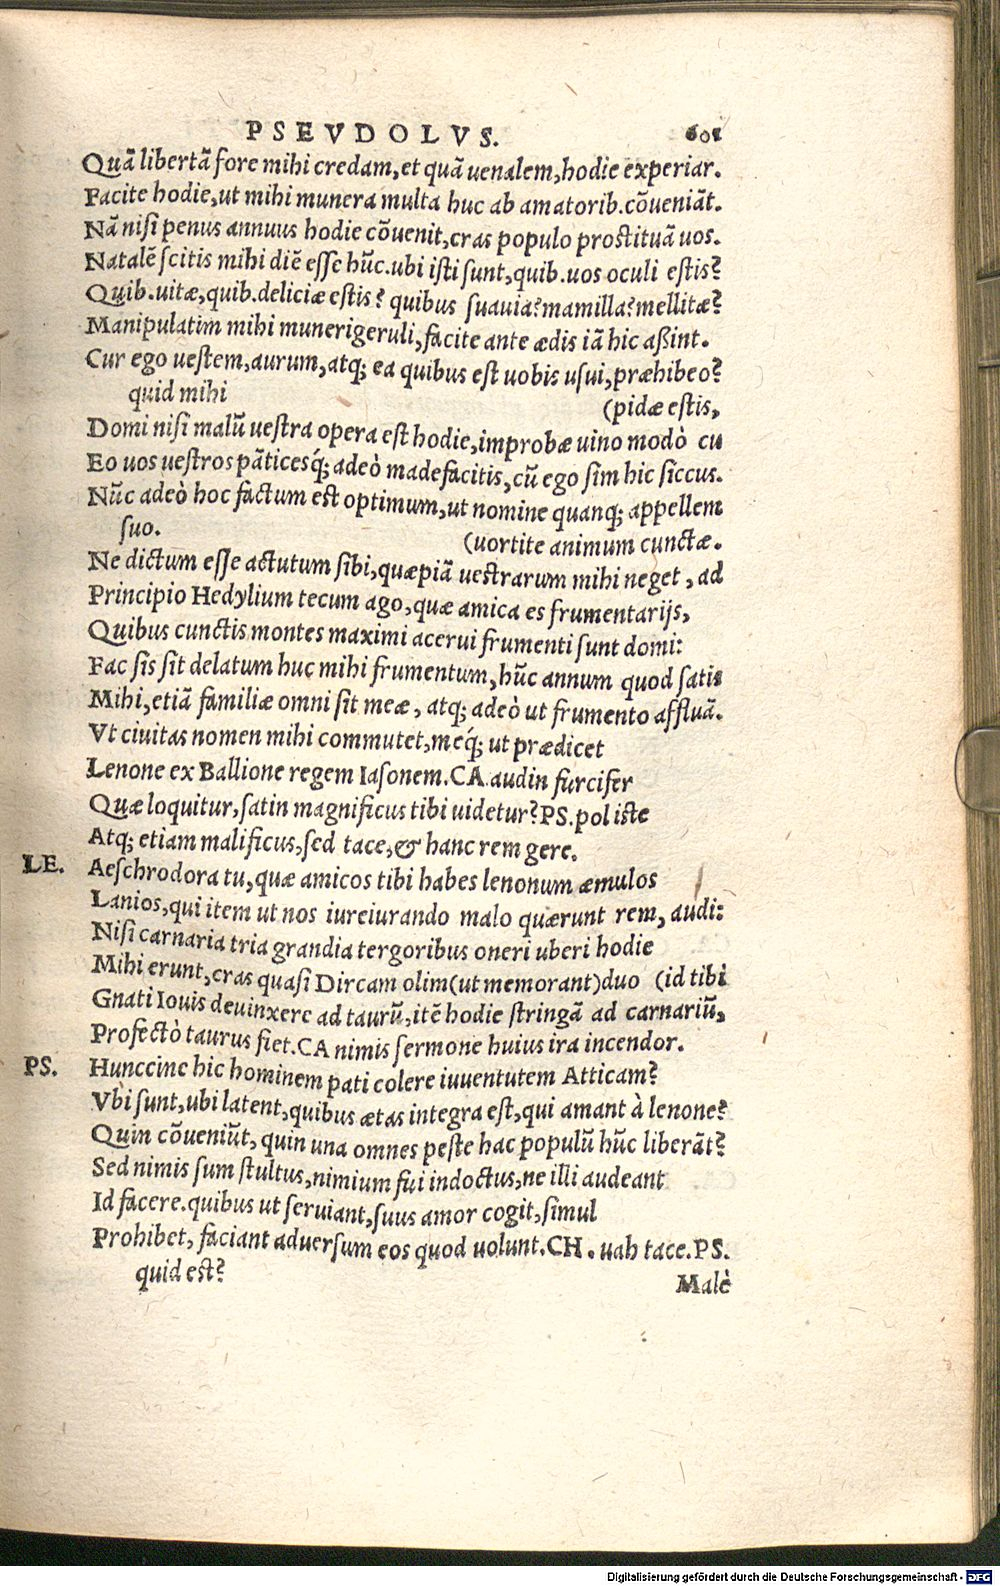 PSEVDOLVS. 601
Quã libertã fore mihi credam, et quã uenalem, hodie experiar.
Facite hodie, ut mihi munera multa huc ab amatorib. cõueniãt.
Nã nisi penus annuus hodie cõuenit, cras populo prostituã uos.
Natalẽ scitis mihi diẽ esse hũc. ubi isti sunt, quib. uos oculi estis?
Quib. uitæ, quib. deliciæ estis? quibus suauia? mamilla? mellitæ?
Manipulatim mihi munerigeruli, facite ante ædis iã hic aßint.
Cur ego uestem, aurum, atq; ea quibus est uobis usui, præhibeo?
quid mihi (pidæ estis,
Domi nisi malũ uestra opera est hodie, improbæ uino modò cu
Eo uos uestros pãticesq́; adeò madefacitis, cũ ego sim hic siccus.
Nũc adeò hoc factum est optimum, ut nomine quanq; appellem
suo. (uortite animum cunctæ.
Ne dictum esse actutum sibi, quæpiã uestrarum mihi neget, ad
Principio Hedylium tecum ago, quæ amica es frumentarijs,
Quibus cunctis montes maximi acerui frumenti sunt domi:
Fac sis sit delatum huc mihi frumentum, hũc annum quod satis
Mihi, etiã familiæ omni sit meæ, atq; adeò ut frumento affluã.
Vt ciuitas nomen mihi commutet, meq́; ut prædicet
Lenone ex Ballione regem Iasonem. CA. audin furcifer
Quæ loquitur, satin magnificus tibi uidetur? PS. pol iste
Atq; etiam malificus, sed tace, & hanc rem gere.
LE. Aeschrodora tu, quæ amicos tibi habes lenonum æmulos
Lanios, qui item ut nos iureiurando malo quærunt rem, audi:
Nisi carnaria tria grandia tergoribus oneri uberi hodie
Mihi erunt, cras quasi Dircam olim (ut memorant) duo (id tibi
Gnati Iouis deuinxere ad taurũ, itẽ hodie stringã ad carnariũ,
Profectò taurus fiet. CA nimis sermone huius ira incendor.
PS. Hunccine hic hominem pati colere iuuentutem Atticam?
Vbi sunt, ubi latent, quibus ætas integra est, qui amant à lenone?
Quin cõueniũt, quin una omnes peste hac populũ hũc liberãt?
Sed nimis sum stultus, nimium fui indoctus, ne illi audeant
Id facere. quibus ut seruiant, suus amor cogit, simul
Prohibet, faciant aduersum eos quod uolunt. CH. uah tace. PS.
quid est?
Malè
Digitalisierung gefördert durch die Deutsche Forschungsgemeinschaft - DFG